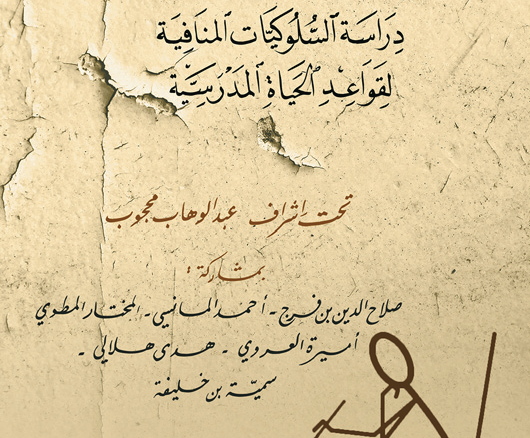 دِرَاسَة ٱلسُّلُوكِيَّات ٱلمنَافِيَة
لِقَوَاعِدِ ٱلحَيَاةِ ٱلمَدْرَسِيَّة
تحت إشراف عبد الوهاب محجوب
بمشاركة :
صلاح الدين بن فرج - أحمد المانسي - المختار المطوي
أميرة العروي - هدى هلالي -
سميّة بن خليفة